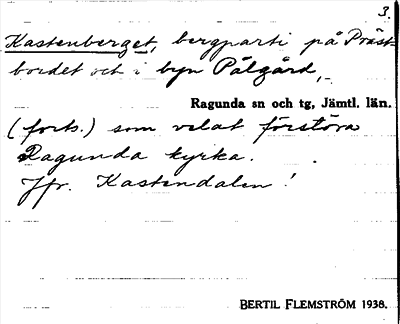 3.
Kastenberget, bergparti på Präst-
bordet och i byn Pålgård,
Ragunda sn och tg, Jämtl. län.
(forts.) som velat förstöra
Ragunda kyrka.
Jfr. Kastendalen!
BERTIL FLEMSTRÖM 1938.